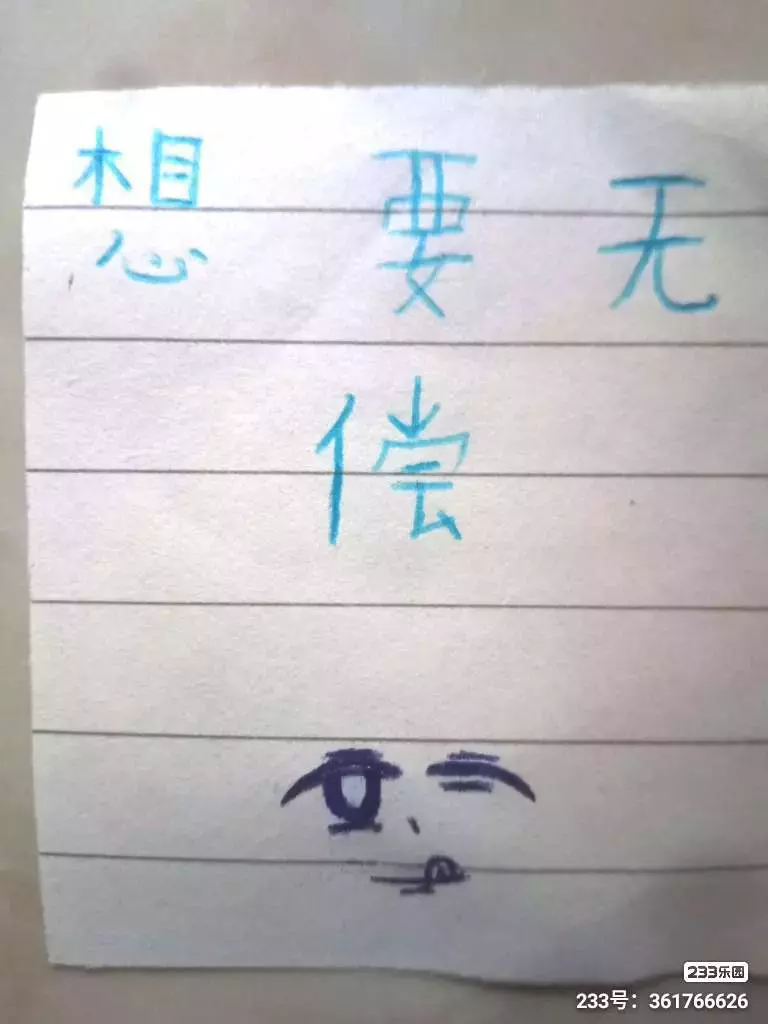 想要无
偿
233乐园
233号：361766626